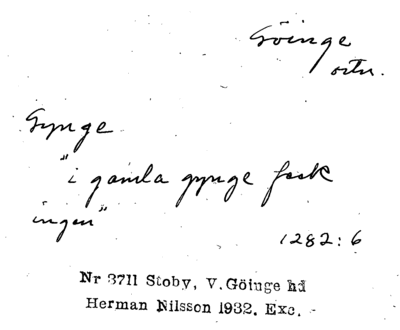 Göinge
ortn.
Gynge
"i gamla gynge feck
ingen"
1282:6
Nr 3711 Stoby, V. Göinge hd
Herman Nilsson 1932. Exc.